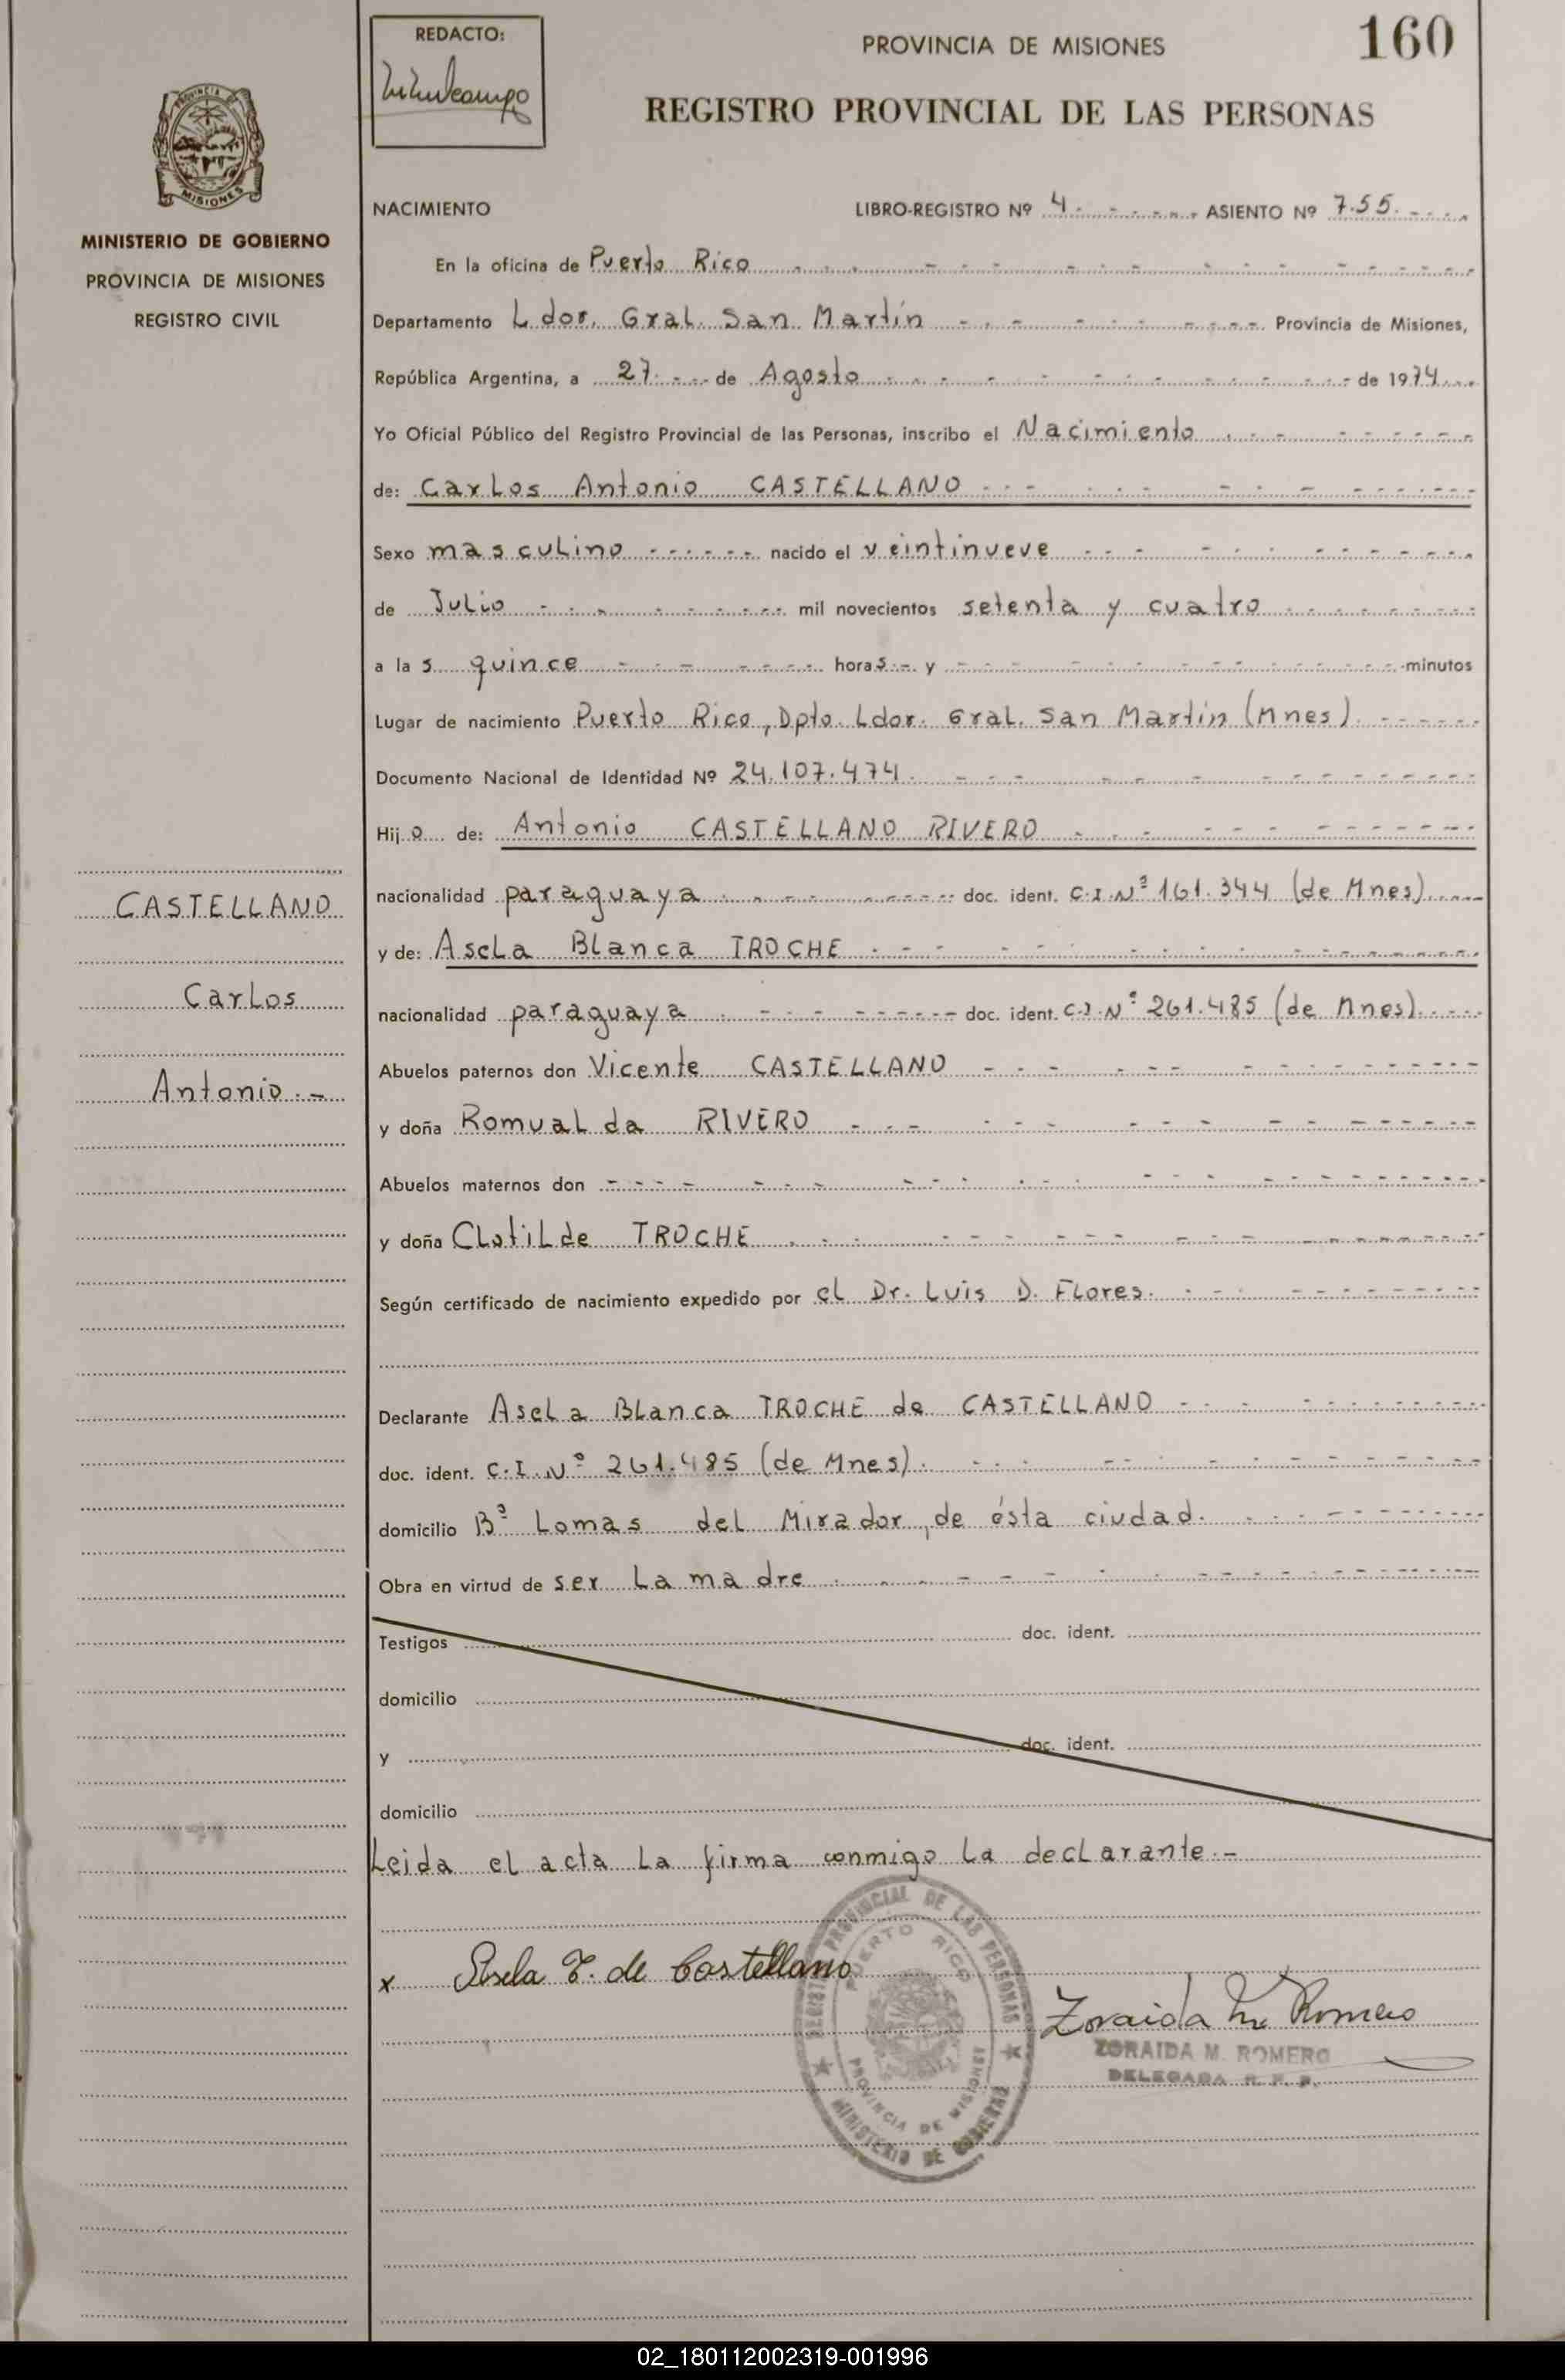 REDACTO:
PROVINCIA DE MISIONES
160
REGISTRO PROVINCIAL DE LAS PERSONAS
PROVINCIA DE
MISIONES
MINISTERIO DE GOBIERNO
PROVINCIA DE MISIONES
REGISTRO CIVIL
NACIMIENTO LIBRO-REGISTRO Nº 4 ASIENTO Nº 755
En la oficina de Puerto Rico
Departamento Ldor. Gral. San Martín Provincia de Misiones,
República Argentina, a 27 de Agosto de 1974
Yo Oficial Público del Registro Provincial de las Personas, inscribo el Nacimiento
de: Carlos Antonio CASTELLANO
Sexo masculino nacido el veintinueve
de Julio mil novecientos setenta y cuatro
a las quince horas y minutos
Lugar de nacimiento Puerto Rico, Dpto. Ldor. Gral. San Martín (Mnes).
Documento Nacional de Identidad Nº 24.107.474.
Hijo de: Antonio CASTELLANO RIVERO
nacionalidad paraguaya doc. ident. C.I. Nº 161.344 (de Mnes)
y de: Asela Blanca TROCHE
nacionalidad paraguaya doc. ident. C.I. Nº 261.485 (de Mnes)
Abuelos paternos don Vicente CASTELLANO
y doña Romualda RIVERO
Abuelos maternos don
y doña Clotilde TROCHE
Según certificado de nacimiento expedido por el Dr. Luis D. Flores.
Declarante Asela Blanca TROCHE de CASTELLANO
doc. ident. C.I. Nº 261.485 (de Mnes).
domicilio Bº Lomas del Mirador, de ésta ciudad.
Obra en virtud de ser la madre
Testigos doc. ident.
domicilio
y doc. ident.
domicilio
Leida el acta la firma conmigo la declarante.-
CASTELLANO
Carlos
Antonio.-
x Asela T. de Castellano
Zoraida M. Romero
ZORAIDA M. ROMERO
DELEGADA R. P. P.
REGISTRO PROVINCIAL DE LAS PERSONAS
PUERTO RICO
PROVINCIA DE MISIONES
MINISTERIO DE GOBIERNO
02_180112002319-001996